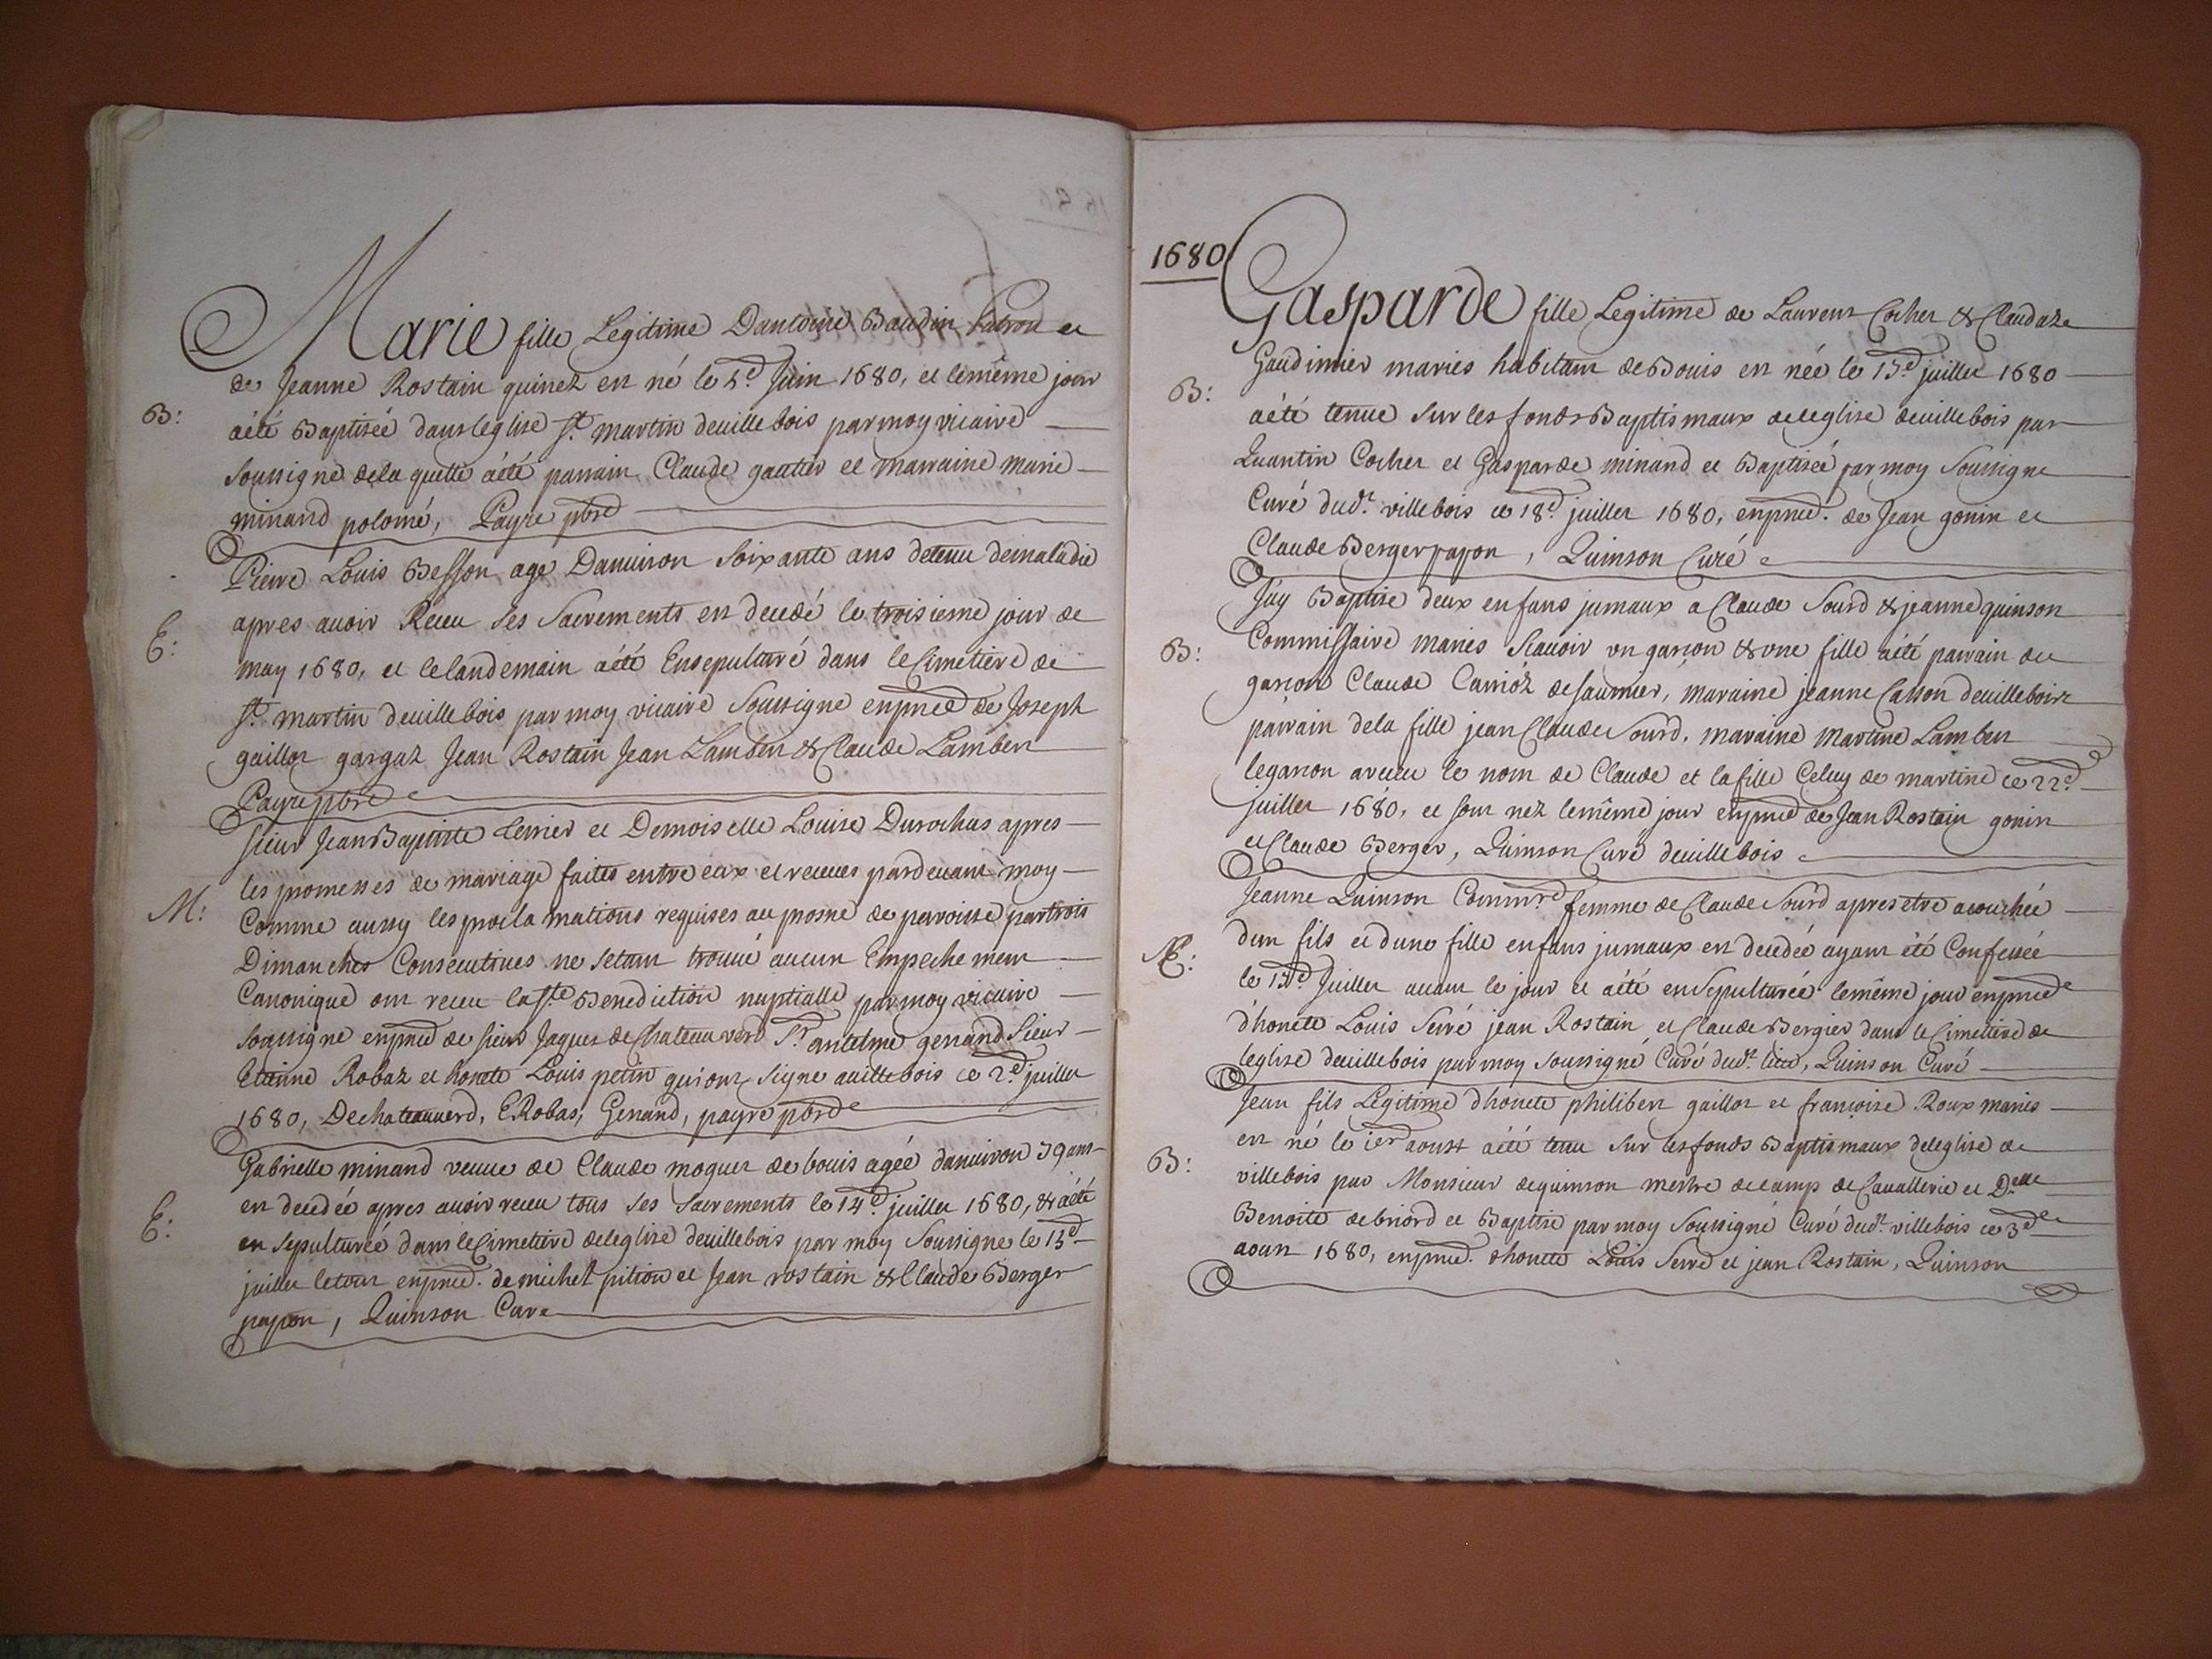 Marie fille Legitime Dantoine Baudin Patron et
de Jeanne Rostain quinez est né le 5.d Juin 1680, et le même jour
B:
a été Baptisée dans leglise St. martin deuillebois par moy vicaire
Soussigné dela quelle aété parrain Claude gautier et marraine marie
minand polomé, Payre pbre
Pierre Louis Besson age Danuiron Soixante ans detenu demaladie
E:
apres auoir Receu ses Sacrements est decedé le troisieme jour de
may 1680, et le landemain aété Ensepulturé dans le Cimetiere de
St. martin deuillebois par moy vicaire Soussigne enpnce de Joseph
gaillot gargaz Jean Rostain Jean Lambert & Claude Lambert
Payre pbre
Sieur Jean Baptiste Perrier et Demoiselle Louise Durochas apres
les promesses de mariage faites entre eux et receues pardeuant moy
M:
Comme aussy les proclamations requises au prosne de paroisse partrois
Dimanches Consecutiues ne setant trouué aucun Empechement
Canonique ont receu la ste Benediction nuptialle par moy vicaire
soussigne enpnce de sieur Jaques de Chateauverd Sr. antelme genand Sieur
Etienne Robaz et honete Louis petin qui ont Signe auillebois ce 2.d juillet
1680, Dechateauuerd, E Robas, Genand, payre pbre
Gabrielle minand veuue de Claude moguet de bouis agée danuiron 39 ans
est decedée apres auoir receu tous ses Sacrements le 14.d juillet 1680, & aété
E:
en sepulturée dans le Cimetiere deleglise deuillebois par moy Soussigne le 15d
juillet letout enpnce. de michel pition et Jean rostain & Claude Berger
papon, Quinson Curé
1680
Gasparde fille Legitime de Laurent Cocher & Claudaze
Gaudimier mariés habitant de Bouis est née le 15.d juillet 1680
B:
aété tenue Sur les fonds Baptismaux deleglise deuillebois par
Quantin Cocher et Gasparde minand et Baptisée par moy Soussigne
Curé dud.t villebois ce 18.d juillet 1680, enpnce. de Jean gonin et
Claude Berger papon, Quinson Curé
Jay Baptise deux enfans jumaux a Claude Sourd & jeanne quinson
B:
Commissaire mariés Scauoir un garson & une fille aété parrain du
garson Claude Carrioz desaumier, maraine jeanne Casson deuillebois
parrain dela fille jean Claude Sourd, maraine martine Lambert
le garson areceu le nom de Claude et la fille Celuy de martine ce 22.d
juillet 1680, et sont nez le même jour enpnce de Jean Rostain gonin
et Claude Berger, Quinson Curé deuillebois
Jeanne Quinson Commre femme de Claude Sourd apres etre acouchée
E:
dun fils et dune fille enfans jumaux est decedée ayant été Confessée
le Juillet auant le jour et aété en Sepulturée le même jour enpnce
d'honete Louis Serré jean Rostain et Claude Bergier dans le Cimetiere de
leglise deuillebois par moy soussigné Curé dud.t lieu, Quinson Curé
Jean fils Legitime dhonete philibert gaillot et francoise Roux mariés
est né le ier aoust aété tenu Sur les fonds Baptismaux deleglise de
B:
villebois par Monsieur dequinson mestre decamp de Cauallerie et Delle
Benoite debriord et Baptise par moy Soussigné Curé dud.t villebois ce 3.d
aoust 1680, enpnce. dhonete Louis Serré et jean Rostain, Quinson